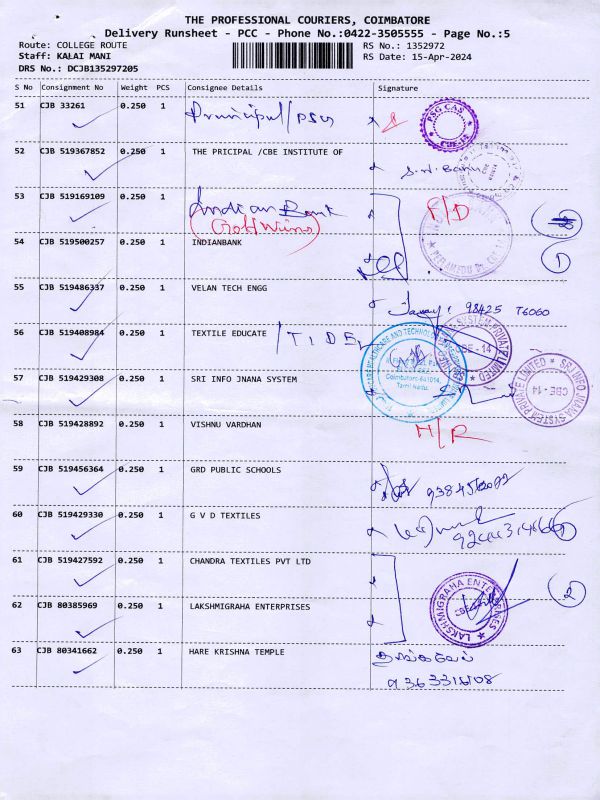 THE PROFESSIONAL COURIERS, COIMBATORE
Delivery Runsheet - PCC - Phone No.:0422-3505555 - Page No.:5
Route: COLLEGE ROUTE RS No.: 1352972
Staff: KALAI MANI RS Date: 15-Apr-2024
DRS No.: DCJB135297205
S No Consignment No Weight PCS Consignee Details Signature
51 CJB 33261 0.250 1 Principal/PSG
52 CJB 519367852 0.250 1 THE PRICIPAL /CBE INSTITUTE OF
53 CJB 519169109 0.250 1 Indian Bank F/D
(Goldwins)
54 CJB 519500257 0.250 1 INDIANBANK 1
55 CJB 519486337 0.250 1 VELAN TECH ENGG 98425 76060
56 CJB 519408984 0.250 1 TEXTILE EDUCATE /TIDEL
57 CJB 519429308 0.250 1 SRI INFO JNANA SYSTEM
58 CJB 519428892 0.250 1 VISHNU VARDHAN H/R
59 CJB 519456364 0.250 1 GRD PUBLIC SCHOOLS
60 CJB 519429330 0.250 1 G V D TEXTILES 1
61 CJB 519427592 0.250 1 CHANDRA TEXTILES PVT LTD
62 CJB 80385969 0.250 1 LAKSHMIGRAHA ENTERPRISES LAKSHMIGRAHA ENTERPRISES 2
63 CJB 80341662 0.250 1 HARE KRISHNA TEMPLE